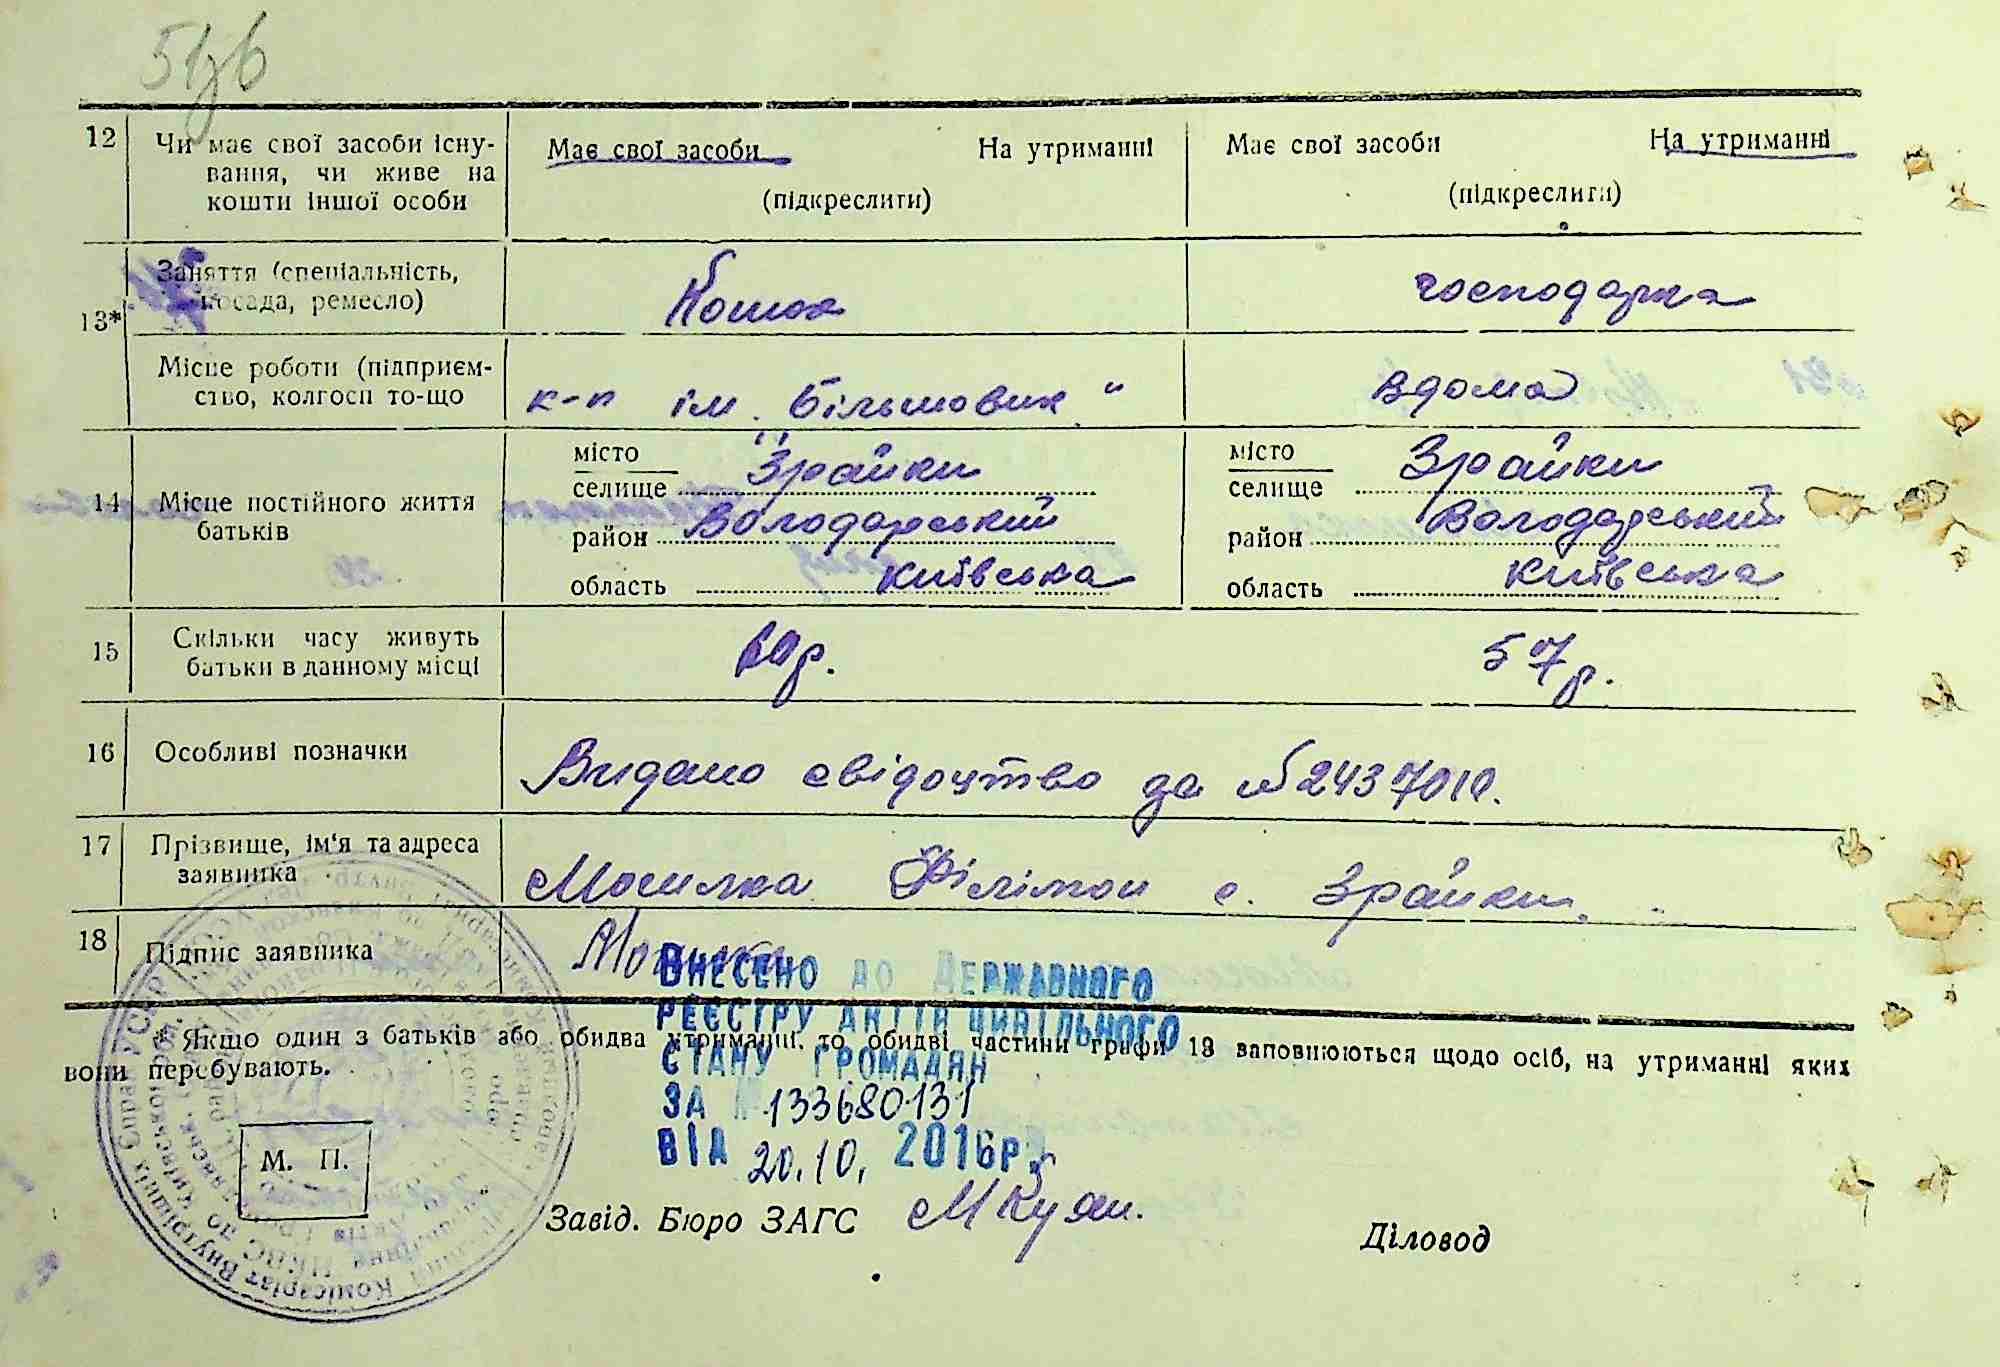 12 Чи має свої засоби існу-
вання, чи живе на
кошти іншої особи
Має свої засоби На утриманні
(підкреслити)
Має свої засоби На утриманні
(підкреслити)
13* Заняття (спеціальність,
посада, ремесло)
господарка
Місце роботи (підприєм-
ство, колгосп то-що
к-п ім. "Більшовик"
вдома
14 Місце постійного життя
батьків
місто
селище Зрайки
район Володарський
область Київська
місто
селище Зрайки
район Володарський
область Київська
15 Скільки часу живуть
батьки в данному місці
р.
57р.
16 Особливі позначки
Видано свідоцтво за № 2437010.
17 Прізвище, ім'я та адреса
заявника
Могилка Філімон с. Зрайки.
18 Підпис заявника
Внесено до Державного
реєстру актів цивільного
стану громадян
за № 133680131
від 20.10. 2016р.
* Якщо один з батьків або обидва утриманці, то обидві частини графи 13 заповнюються щодо осіб, на утриманні яких
вони перебувають.
М. П.
Завід. Бюро ЗАГС
Діловод